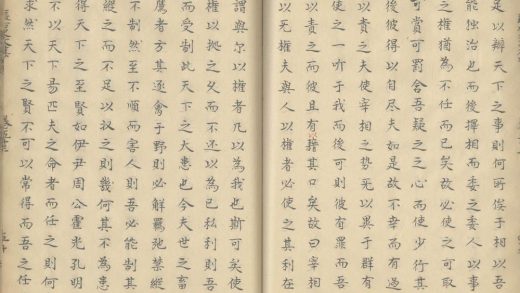 是以辯天下之事則何所俟于相以吾
能独治也而後擇相而委之委人以事
之權猶為不任而已矣故必使之可取
可賞可罰舍吾疑之之心而使少行其
後彼得以自尽夫如是故不幸而有過
以責之夫使宰相之势死以異于群有
使之一听于我而後可則彼有罪而吾
以責之而彼且有其口矣故曰宰相
以无權夫與人以權者必使之其利在
謂與尔以權者凡以為我也斯可矣使
權以拠之父而不还以為已私利則吾
而受制此天下之大患也今夫世之畜
鷹者方其逐禽于野則必解羈弛禁縱
市制然至不順而害人則吾必能制其
縱之而不足以収之則幾何其不為患
得天下之至賢如伊尹周公霍光孔明
不以天下易匹夫之命者而任之則何
求然天下之賢不可以常得而吾之任